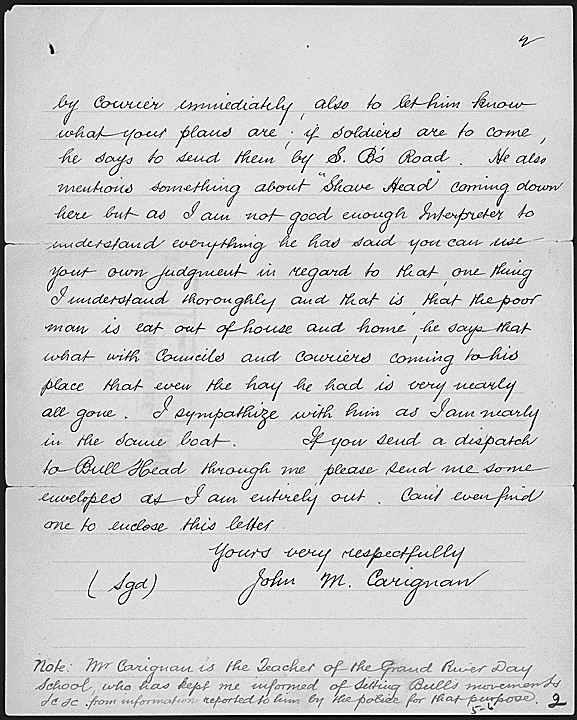 2
by courier immediately, also to let him know
what your plans are; if soldiers are to come,
he says to send them by S. B's Road. He also
mentions something about "Shave Head" coming down
here but as I am not good enough Interpreter to
understand everything he has said you can use
your own judgment in regard to that, one thing
I understand thoroughly and that is, that the poor
man is eat out of house and home, he says that
what with Councils and couriers coming to his
place that even the hay he had is very nearly
all gone. I sympathize with him as I am nearly
in the same boat. If you send a dispatch
to Bull Head through me, please send me some
envelopes as I am entirely out. Can't even find
one to enclose this letter.
Yours very respectfully
(Sgd) John M. Carignan
Note: Mr Carignan is the Teacher of the Grand River Day
School, who has kept me informed of Sitting Bull's movements
&c &c. from information reported to him by the police for that purpose.
5-2